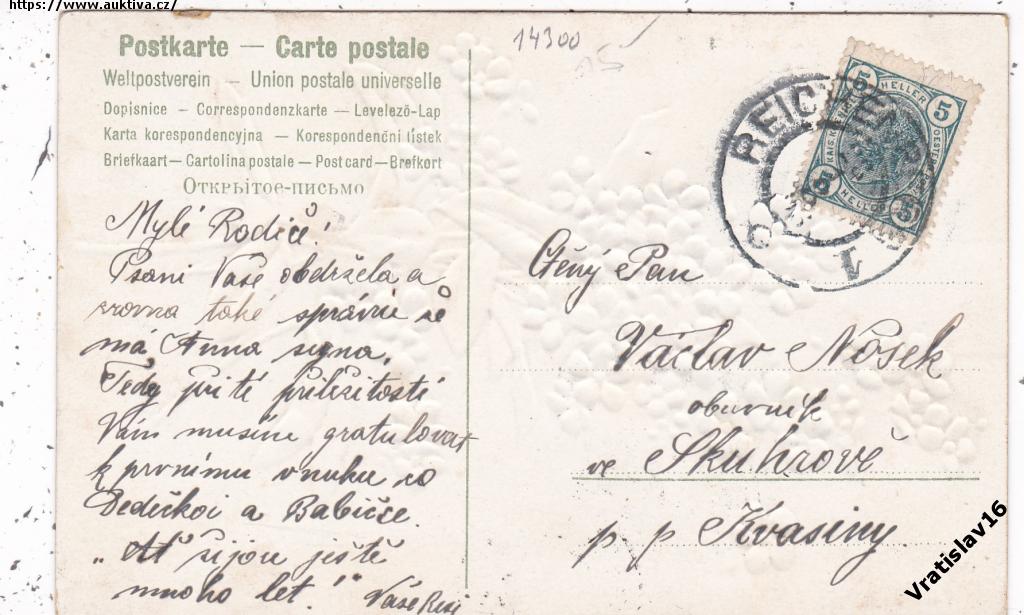 https://www.auktiva.cz/
Postkarte — Carte postale
Weltpostverein — Union postale universelle
Dopisnice — Correspondenzkarte — Levelező-Lap
Karta korespondencyjna — Korespondenční lístek
Briefkaart — Cartolina postale — Post card — Brefkort
Открытое-письмо
14300
Mylí Rodiče!
Psaní Vaše obdržela a
zrovna také správu že
má Anna syna.
Tedy při té příležitosti
Vám musíme gratulovat
k prvnímu vnuku co
Dedečkoi a Babičce.
„Ať žijou ještě
mnoho let!" Vaše Resi
Ctěný Pan
Václav Nosek
obuvník
ve Skuhrově
p p Kvasiny
REICHENB
1
5 HELLER 5
5 HELLER 5
Vratislav16